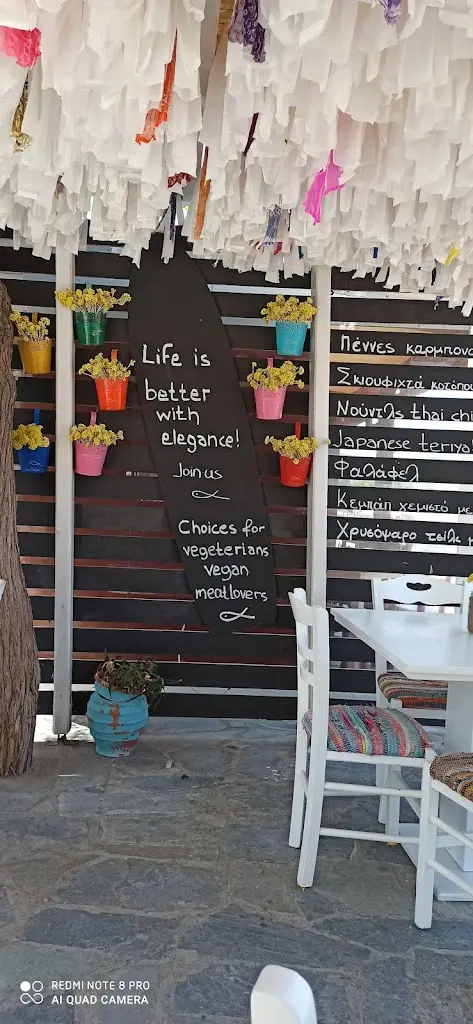 Life is
better
with
elegance!
Join us
Choices for
vegeterians
vegan
meatlovers
Πέννες καρμπονα
Σκιουφιχτά κοτόπου
Νούντλς thai chi
Japanese teriya
Φαλάφελ
Κεμπάπ χεμιστό με
Χρυσόψαρο τσίλι
REDMI NOTE 8 PRO
AI QUAD CAMERA